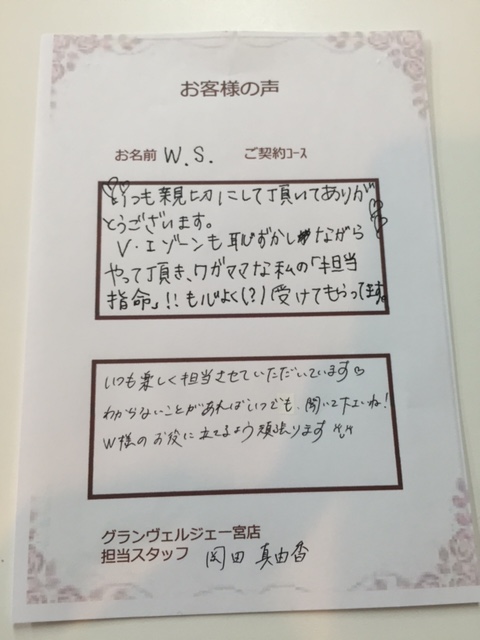 お客様の声
お名前 W.S. ご契約ｺｰｽ
いつも親切にして頂いてありが
とうございます。
V・Iゾーンも恥ずかしながら
やって頂き、ワガママな私の「担当
指命」!!も心よく(?)受けてもらってます。
いつも楽しく担当させていただいています♡
わからないことがあればいつでも、聞いて下さいね!
W様のお役に立てるよう頑張ります
グランヴェルジェ一宮店
担当スタッフ 岡田 真由香